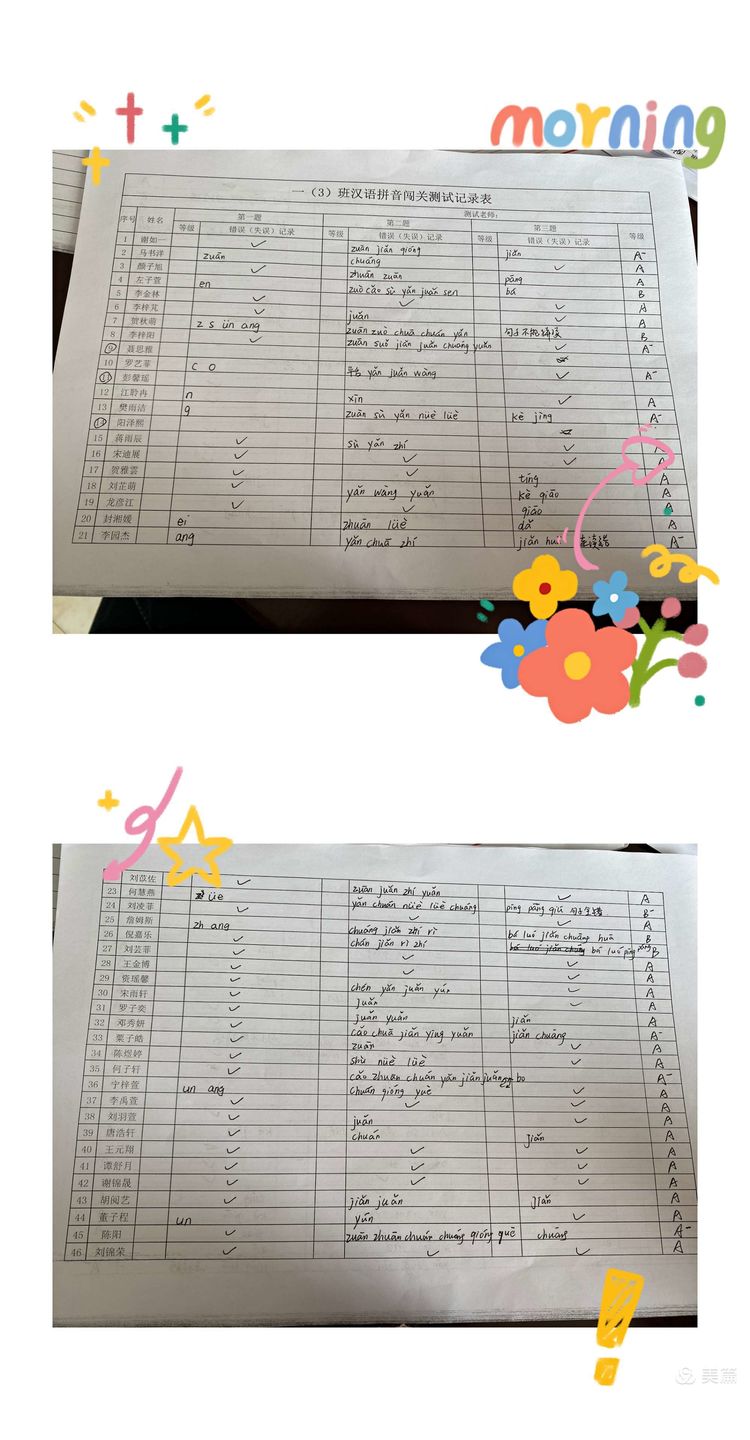 morning
一（3）班汉语拼音闯关测试记录表
测试老师：
序号 姓名 第一题 第二题 第三题 等级
等级 错误（失误）记录 等级 错误（失误）记录 等级 错误（失误）记录
1 谢如一 ✓ zuān jiǎn qióng jiǎn A⁻
2 马书洋 zuān chuáng A
3 颜子旭 ✓ zhuān zuān ✓ A
4 左子萱 en pāng A
5 李金林 ✓ zuò cāo sù yǎn juǎn sen bá B
6 李梓芃 ✓ ✓ ✓ A
7 贺秋萌 z s ün ang juǎn ✓ A
8 李梓阳 ✓ zuān zuò chuā chuán yǎn B
9 聂思雅 zuān suǐ jiǎn juǎn chuáng yuǎn ✓ A⁻
10 罗艺菲 c o
11 彭馨瑶 yǎn juǎn wàng ✓ A⁻
12 江聆冉 n
13 樊雨洁 q xīn ✓ A
阳泽熙 zuān sù yǎn nüè lüè kè jìng A⁻
15 蒋雨辰 ✓
16 宋迪展 ✓ sù yán zhí ✓
17 贺雅雲 ✓ ✓ ✓ A
18 刘芷萌 ✓ tíng A
19 龙彦江 ✓ yǎn wàng yuǎn kè qiāo A
20 封湘媛 ei ✓ qiāo
21 李园杰 ang zhuān lüè dǎ A
yǎn chuā zhí jiǎn A⁻
刘苡佐 ✓
23 何慧燕 üe zuān juǎn zhí yuǎn ✓ A
24 刘凌菲 ✓ yǎn chuán nüè lüè chuáng pīng pāng qiú B⁻
25 詹姆斯 ✓ A
26 倪嘉乐 zh ang chuáng jiǎn zhí rì bá luó jiǎn chuāng huā B
27 刘芸菲 ✓ chán jiǎn rì zhí bá luó pīng pāng B
28 王金博 ✓ ✓ ✓ A
29 资瑶馨 ✓ ✓ ✓ A
30 宋雨轩 ✓ chén yǎn juǎn yún ✓ A
31 罗子奕 ✓ juǎn ✓ A
32 邓秀妍 ✓ juǎn yuǎn jiǎn A
33 粟子皓 ✓ cāo chuā jiǎn yīng yuǎn jiǎn chuāng A⁻
34 陈煜婷 ✓ zuān ✓ A
35 何子轩 ✓ shù nüè lüè ✓ A
36 宁梓萱 un ang cāo zhuān chuán yǎn jiǎn juǎn bo A⁻
37 李禹萱 ✓ chuán qióng yuè ✓ A
38 刘羽萱 ✓ ✓ ✓ A
39 唐浩轩 ✓ juǎn ✓ A
40 王元翔 ✓ chuán jiǎn A
41 谭舒月 ✓ ✓ ✓ A
42 谢锦晟 ✓ ✓ ✓ A
43 胡阅艺 ✓ jiǎn juǎn jiǎn A
44 董子程 un yún ✓ A
45 陈阳 ✓ zuān zhuān chuán chuáng qióng què chuāng A⁻
46 刘锦荣 ✓ ✓ ✓ A
美篇